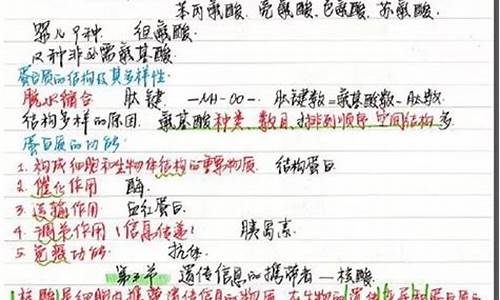 苯丙氨酸、亮氨酸、色氨酸、苏氨酸、
婴儿9种、组氨酸
12种非必需氨基酸
蛋白质的结构及其多样性
脱水缩合 肽键 -NH-CO- 肽键数=氨基酸数-肽数
结构多样的原因 氨基酸种类 数目 排列顺序 空间结构
蛋白质的功能
1. 构成细胞和生物体结构的重要物质 结构蛋白
2. 催化作用 酶
3. 运输作用 血红蛋白
4. 调节作用(信息传递) 胰岛素
5. 免疫功能 抗体
第三节 遗传信息的携带者—核酸
核酸是细胞内携带遗传信息的物质